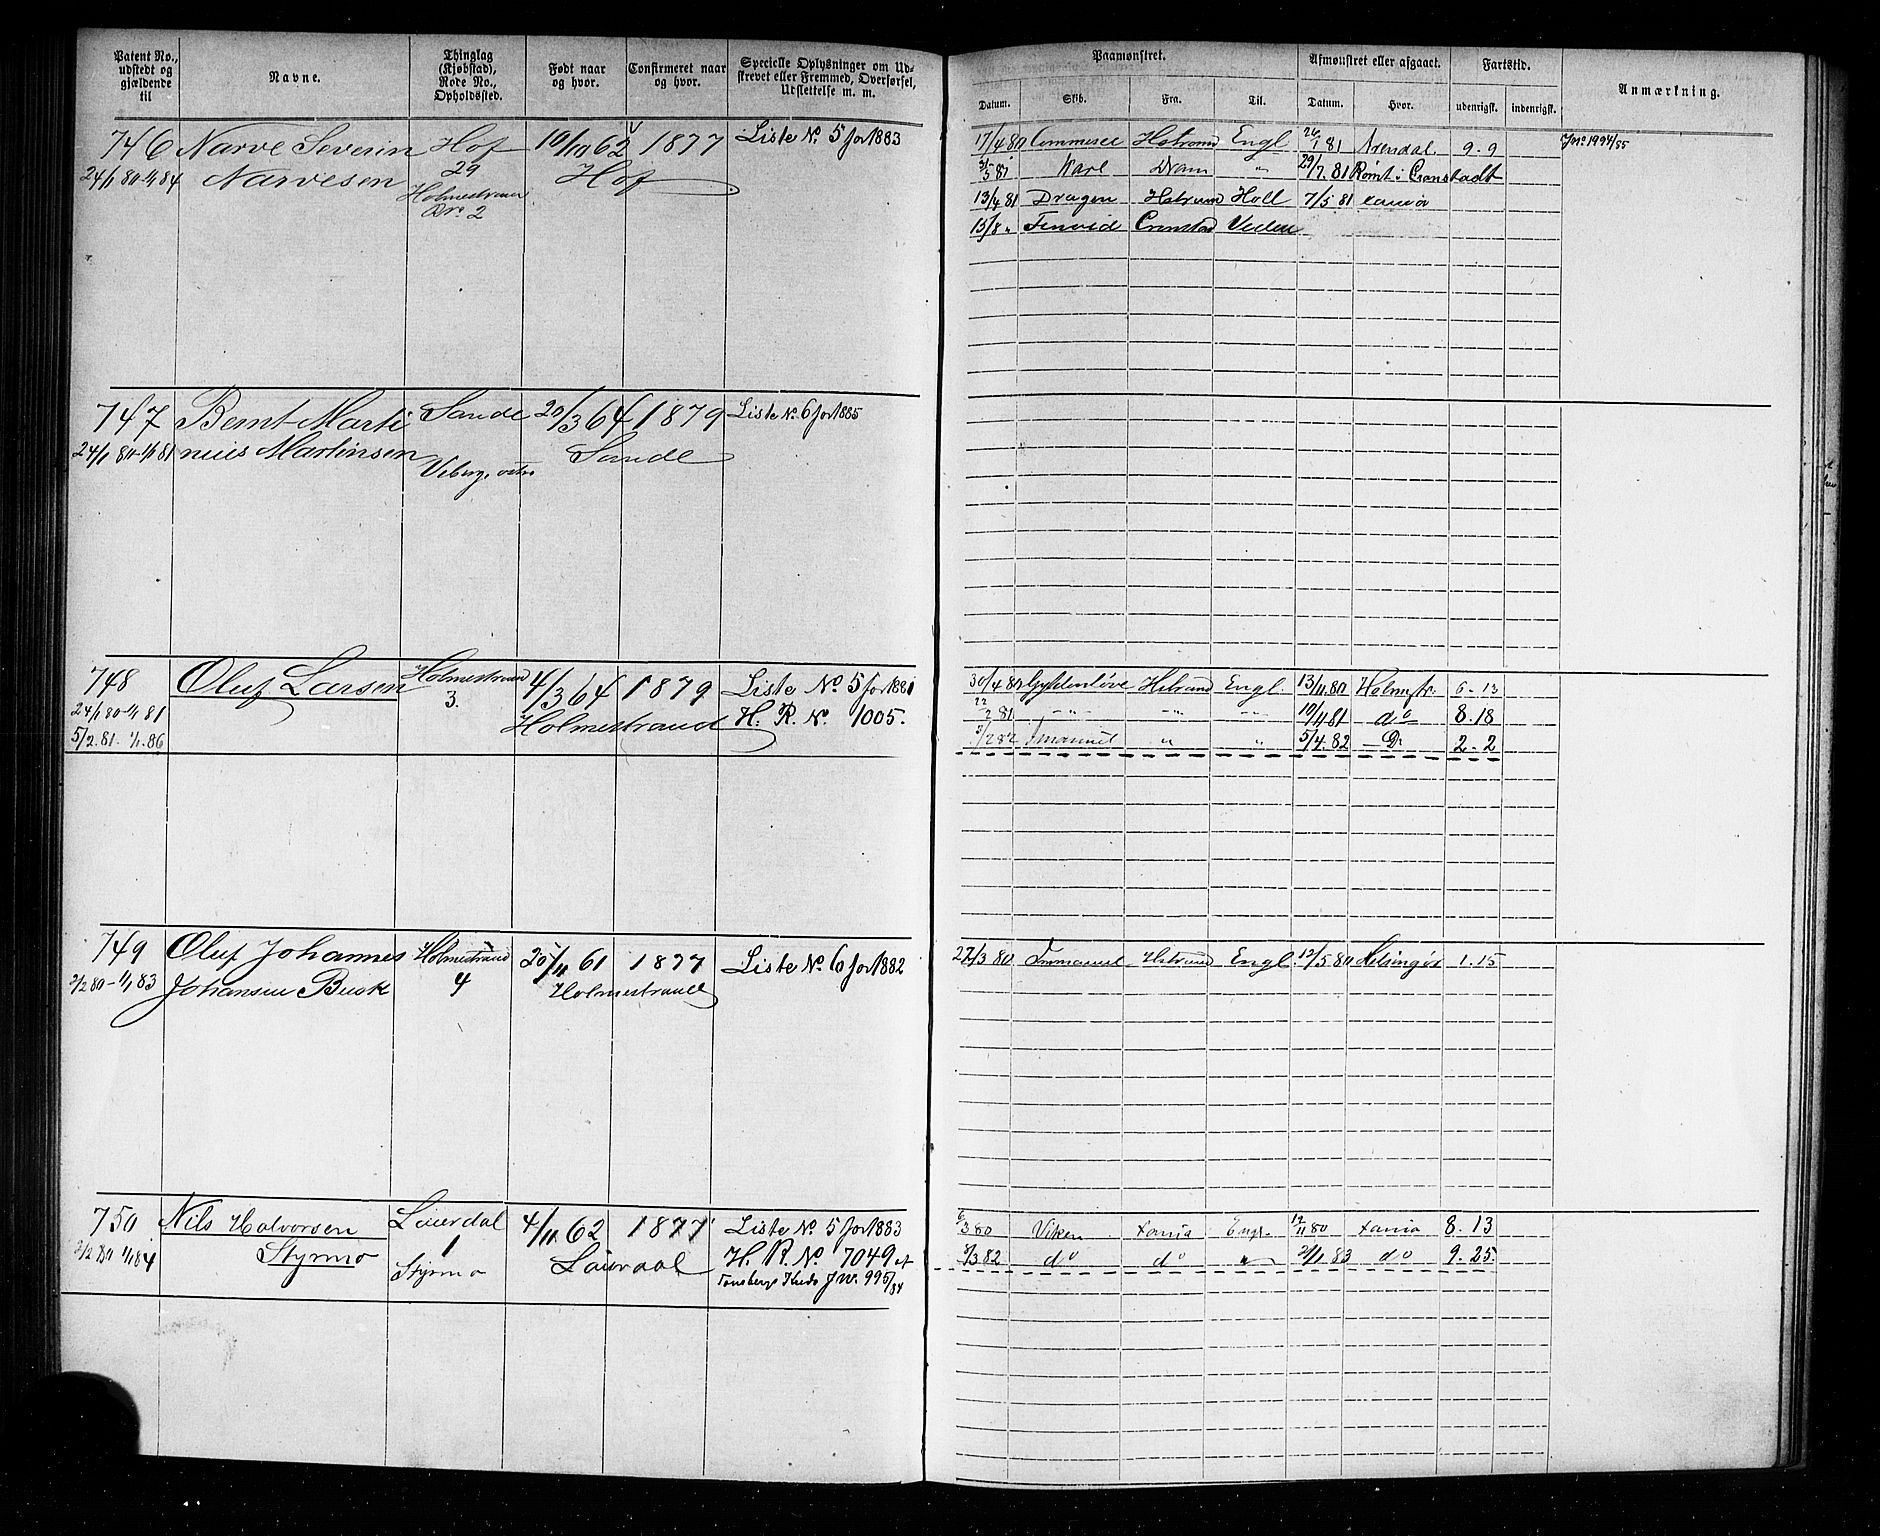 Patent No., udstedt og gjældende til
Navne.
Thinglag (Kjøbstad), Rode No., Opholdssted.
Født naar og hvor.
Confirmeret naar og hvor.
Specielle Oplysninger om Udskrevet eller Fremmed, Overførsel, Udslettelse m. m.
Paamønstret.
Datum. Skib. Fra. Til.
Afmønstret eller afgaaet.
Datum. Hvor.
Fartstid.
udenrigsk. indenrigsk.
Anmærkning.
746 Narve Severin Hof 10/10 62 1877 Liste No. 5 for 1883
24/1 80-1/1 84 Narvesen 29 Hof
Holmestrand
No 2
17/4 80 Commerce Hstrand Engl 1 81 Arendal. 9.9
Karl Dram " 29/7.81 Rømt i Cronstadt
13/4 81 Dragen Hstrand Holl 7/5 81 xania
15/8 " Cronstad
747 Bernt Marti Sande 20/3 64 1879 Liste No. 6 for 1885
24/1 80-1/1 81 nius Martinsen Sande
Viberg, østre
748 Oluf Larsen Holmestrand 4/3 64 1879 Liste No. 5 for 1881
24/1 80-1/1 81 3. Holmestrand H. R. No. 1005.
5/2.81. 1/1.86
30/4 80 Gyldenløve Hstrand Engl. 13/11.80 Holmstr. 6-13
22/2 81 -"- -"- -"- 10/11 81 do 8.18
/2 82 Immanuel " " 5/4.82 Do 2-2
749 Oluf Johannes Holmestrand 25/11 61 1877 Liste No. 6 for 1882
2/2 80-1/1 83 Johansen Busk 4 Holmestrand
27/3 80 Immanuel Hstrand Engl 12/5 80 Helsingør 1.15
750 Nils Halvorsen Lauerdal 4/11 62 1877 Liste No. 5 for 1883
2/2 80 1/1 84 Styrmo 1 Laurdal H. R. No. 7049 af
Styrmo Tønsbergs Kreds JW. 995/84
6/3 80 Viken xania Engl. 12/11 80 xania 8.13
/3 82 do do " 2/1 83 do 9.25